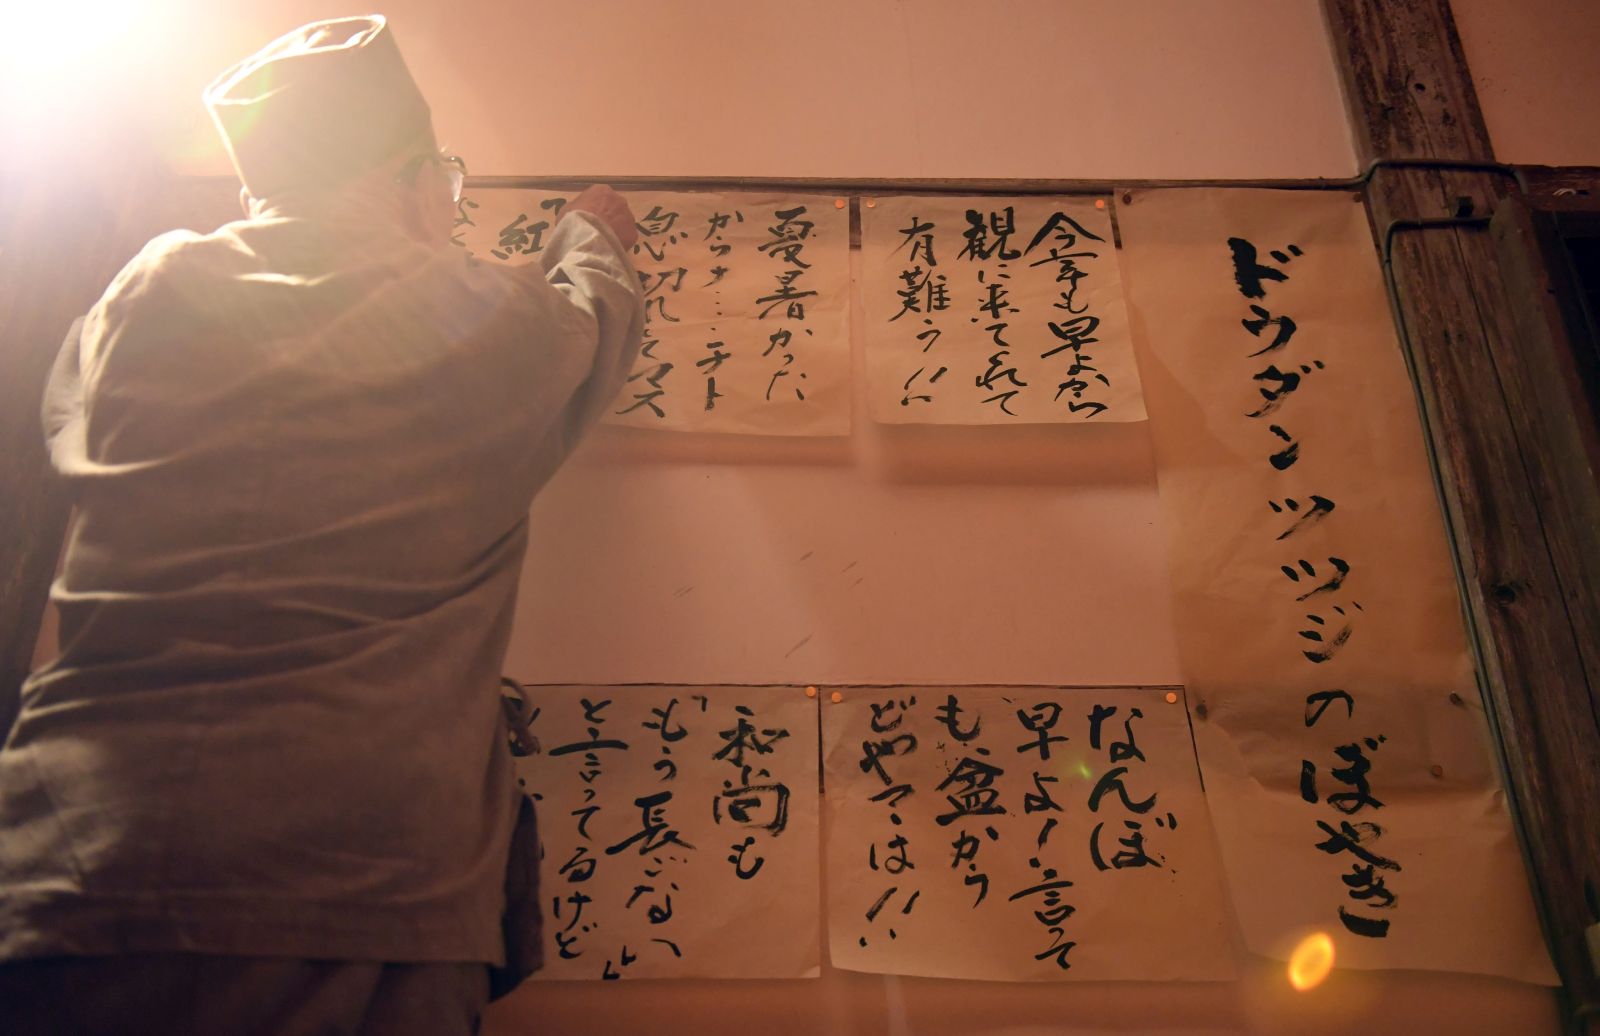 ドウダンツツジのぼやき
今年も早よから
観に来てくれて
有難う!!
夏暑かった
からナ…チト
息切れしてマス
「紅
なんぼ
早よ!言って
も、盆から
どやマヽは!!
和尚も
「もう長いなへ」
と言ってるけど